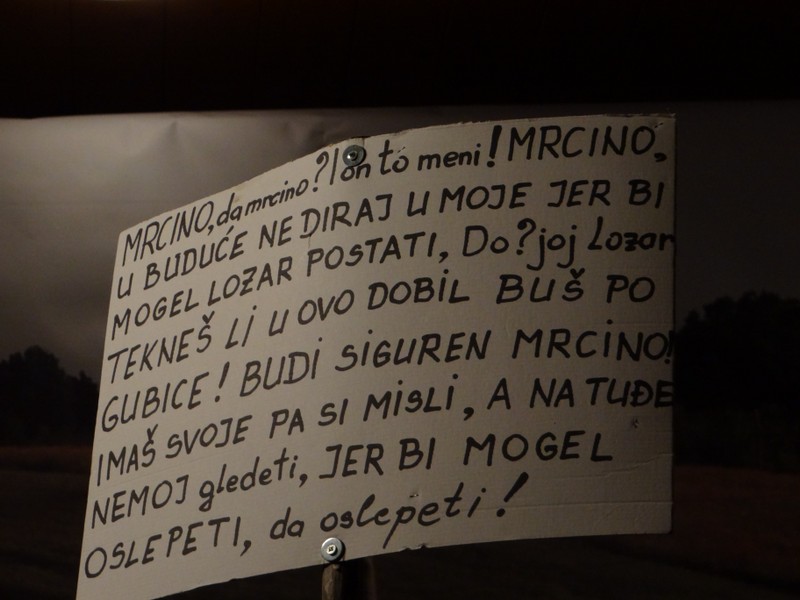 MRCINO, da mrcino? I on to meni! MRCINO,
U BUDUĆE NE DIRAJ U MOJE JER BI
MOGEL LOZAR POSTATI, Do?joj Lozar
TEKNEŠ LI U OVO DOBIL BUŠ PO
GUBICE! BUDI SIGUREN MRCINO!
IMAŠ SVOJE PA SI MISLI, A NA TUĐE
NEMOJ gledeti, JER BI MOGEL
OSLEPETI, da oslepeti!